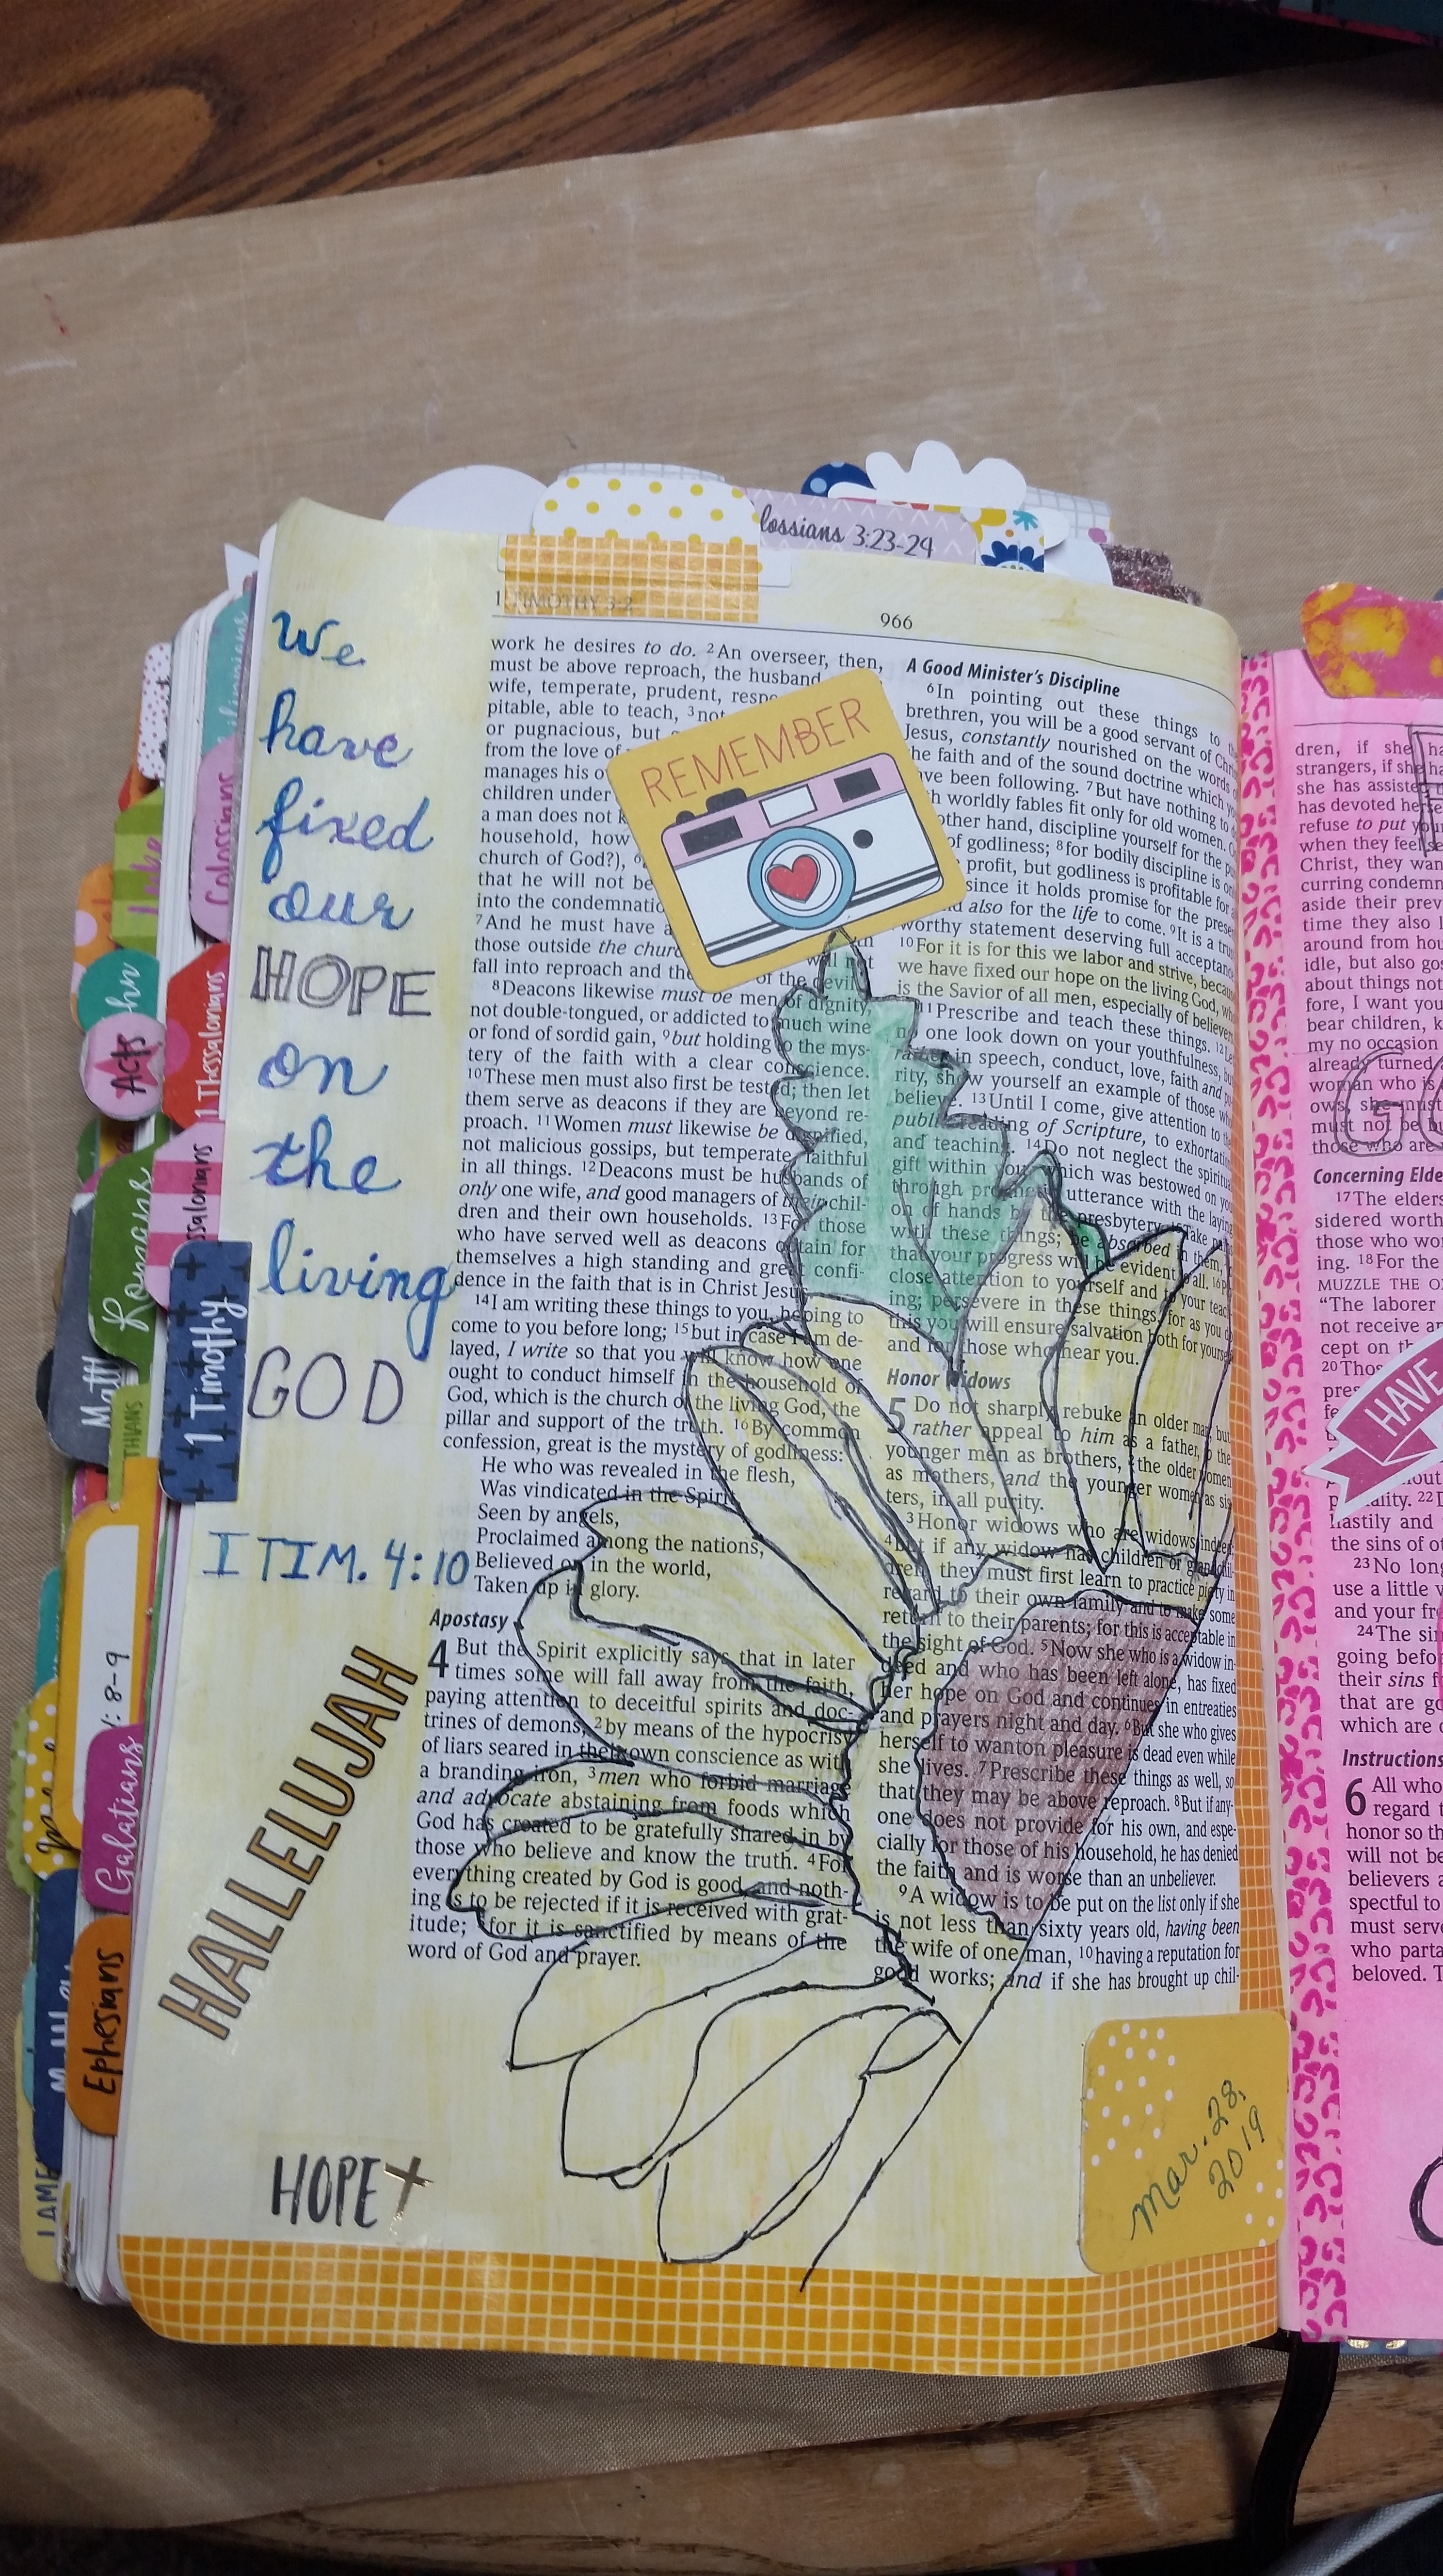 lossians 3:23-24
1 TIMOTHY 3-
966
We
have
fixed
our
HOPE
on
the
living
GOD
I TIM. 4:10
HALLELUJAH
HOPE
work he desires to do. 2An overseer, then,
must be above reproach, the husband
wife, temperate, prudent,
pitable, able to teach, 3not
or pugnacious, but
from the love of
manages his
children under
a man does not
household, how
church of God?),
that he will not be
into the condemnatio
7And he must have
those outside the churc
fall into reproach and the of the devil.
8Deacons likewise must be men of dignity,
not double-tongued, or addicted to much wine
or fond of sordid gain, 9but holding to the mys-
tery of the faith with a clear conscience.
10These men must also first be tested; then let
them serve as deacons if they are beyond re-
proach. 11Women must likewise be dignified,
not malicious gossips, but temperate, faithful
in all things. 12Deacons must be husbands of
only one wife, and good managers of their chil-
dren and their own households. 13For those
who have served well as deacons obtain for
themselves a high standing and great confi-
dence in the faith that is in Christ Jesus.
14I am writing these things to you, hoping to
come to you before long; 15but in case I am de-
layed, I write so that you will know how one
ought to conduct himself in the household of
God, which is the church of the living God, the
pillar and support of the truth. 16By common
confession, great is the mystery of godliness:
He who was revealed in the flesh,
Was vindicated in the Spirit,
Seen by angels,
Proclaimed among the nations,
Believed on in the world,
Taken up in glory.
Apostasy
4 But the Spirit explicitly says that in later
times some will fall away from the faith,
paying attention to deceitful spirits and doc-
trines of demons, 2by means of the hypocrisy
of liars seared in their own conscience as with
a branding iron, 3men who forbid marriage
and advocate abstaining from foods which
God has created to be gratefully shared in by
those who believe and know the truth. 4For
everything created by God is good, and noth-
ing is to be rejected if it is received with grat-
itude; for it is sanctified by means of the
word of God and prayer.
REMEMBER
A Good Minister's Discipline
6In pointing out these things to
brethren, you will be a good servant of
Jesus, constantly nourished on the words
he faith and of the sound doctrine which
ve been following. 7But have nothing to
h worldly fables fit only for old women.
other hand, discipline yourself for the
of godliness; 8for bodily discipline is
profit, but godliness is profitable for
since it holds promise for the
also for the life to come. 9It is a
worthy statement deserving full
10For it is for this we labor and strive,
we have fixed our hope on the living God,
is the Savior of all men, especially of
11Prescribe and teach these things.
one look down on your youthfulness,
rather in speech, conduct, love, faith and
rity, show yourself an example of those
believe. 13Until I come, give attention to
public reading of Scripture, to
and teaching. 14Do not neglect the
gift within you, which was bestowed on
through prophetic utterance with the
on of hands by the presbytery. 15Take
with these things; be absorbed in them,
that your progress will be evident to all.
close attention to yourself and to your
ing; persevere in these things, for as you
this you will ensure salvation both for
and for those who hear you.
Honor Widows
5 Do not sharply rebuke an older man, but
rather appeal to him as a father, to the
younger men as brothers, 2the older women
as mothers, and the younger women as sis
ters, in all purity.
3Honor widows who are widows indeed;
4but if any widow has children or grandchil-
dren, they must first learn to practice piety in
regard to their own family and to make some
return to their parents; for this is acceptable in
the sight of God. 5Now she who is a widow in-
deed and who has been left alone, has fixed
her hope on God and continues in entreaties
and prayers night and day. 6But she who gives
herself to wanton pleasure is dead even while
she lives. 7Prescribe these things as well, so
that they may be above reproach. 8But if any-
one does not provide for his own, and espe-
cially for those of his household, he has denied
the faith and is worse than an unbeliever.
9A widow is to be put on the list only if she
is not less than sixty years old, having been
the wife of one man, 10having a reputation for
good works; and if she has brought up chil-
mar. 28,
2019
dren, if she ha
strangers, if she ha
she has assiste
has devoted herse
refuse to put
when they feel
Christ, they wan
curring condemn
aside their prev
time they also l
around from hou
idle, but also gos
about things not
fore, I want you
bear children, k
my no occasion
already turned a
woman who is
ows, she must
must not be bu
those who are
GO
Concerning Elde
17The elders
sidered worth
those who wo
ing. 18For the
MUZZLE THE O
"The laborer
not receive an
cept on th
20Thos
HAVE
22
hastily and
the sins of ot
23No long
use a little w
and your fre
24The sin
going befo
their sins f
that are go
which are o
Instructions
6 All who
regard t
honor so th
will not be
believers a
spectful to
must serve
who parta
beloved. T
Colossians
Luke
Acts
1 Thessalonians
ssalonians
Romans
1 Timothy
Matt
THIANS
: 8-9
Galatians
Ephesians
I AM